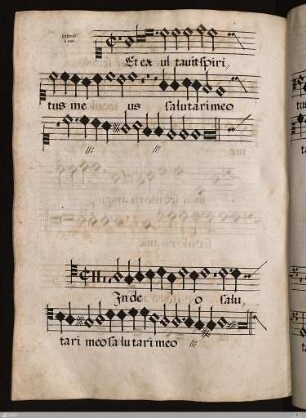 Et ex ul tavit spiri,
tus me us salutari meo
In de o salu
tari meo salutari meo